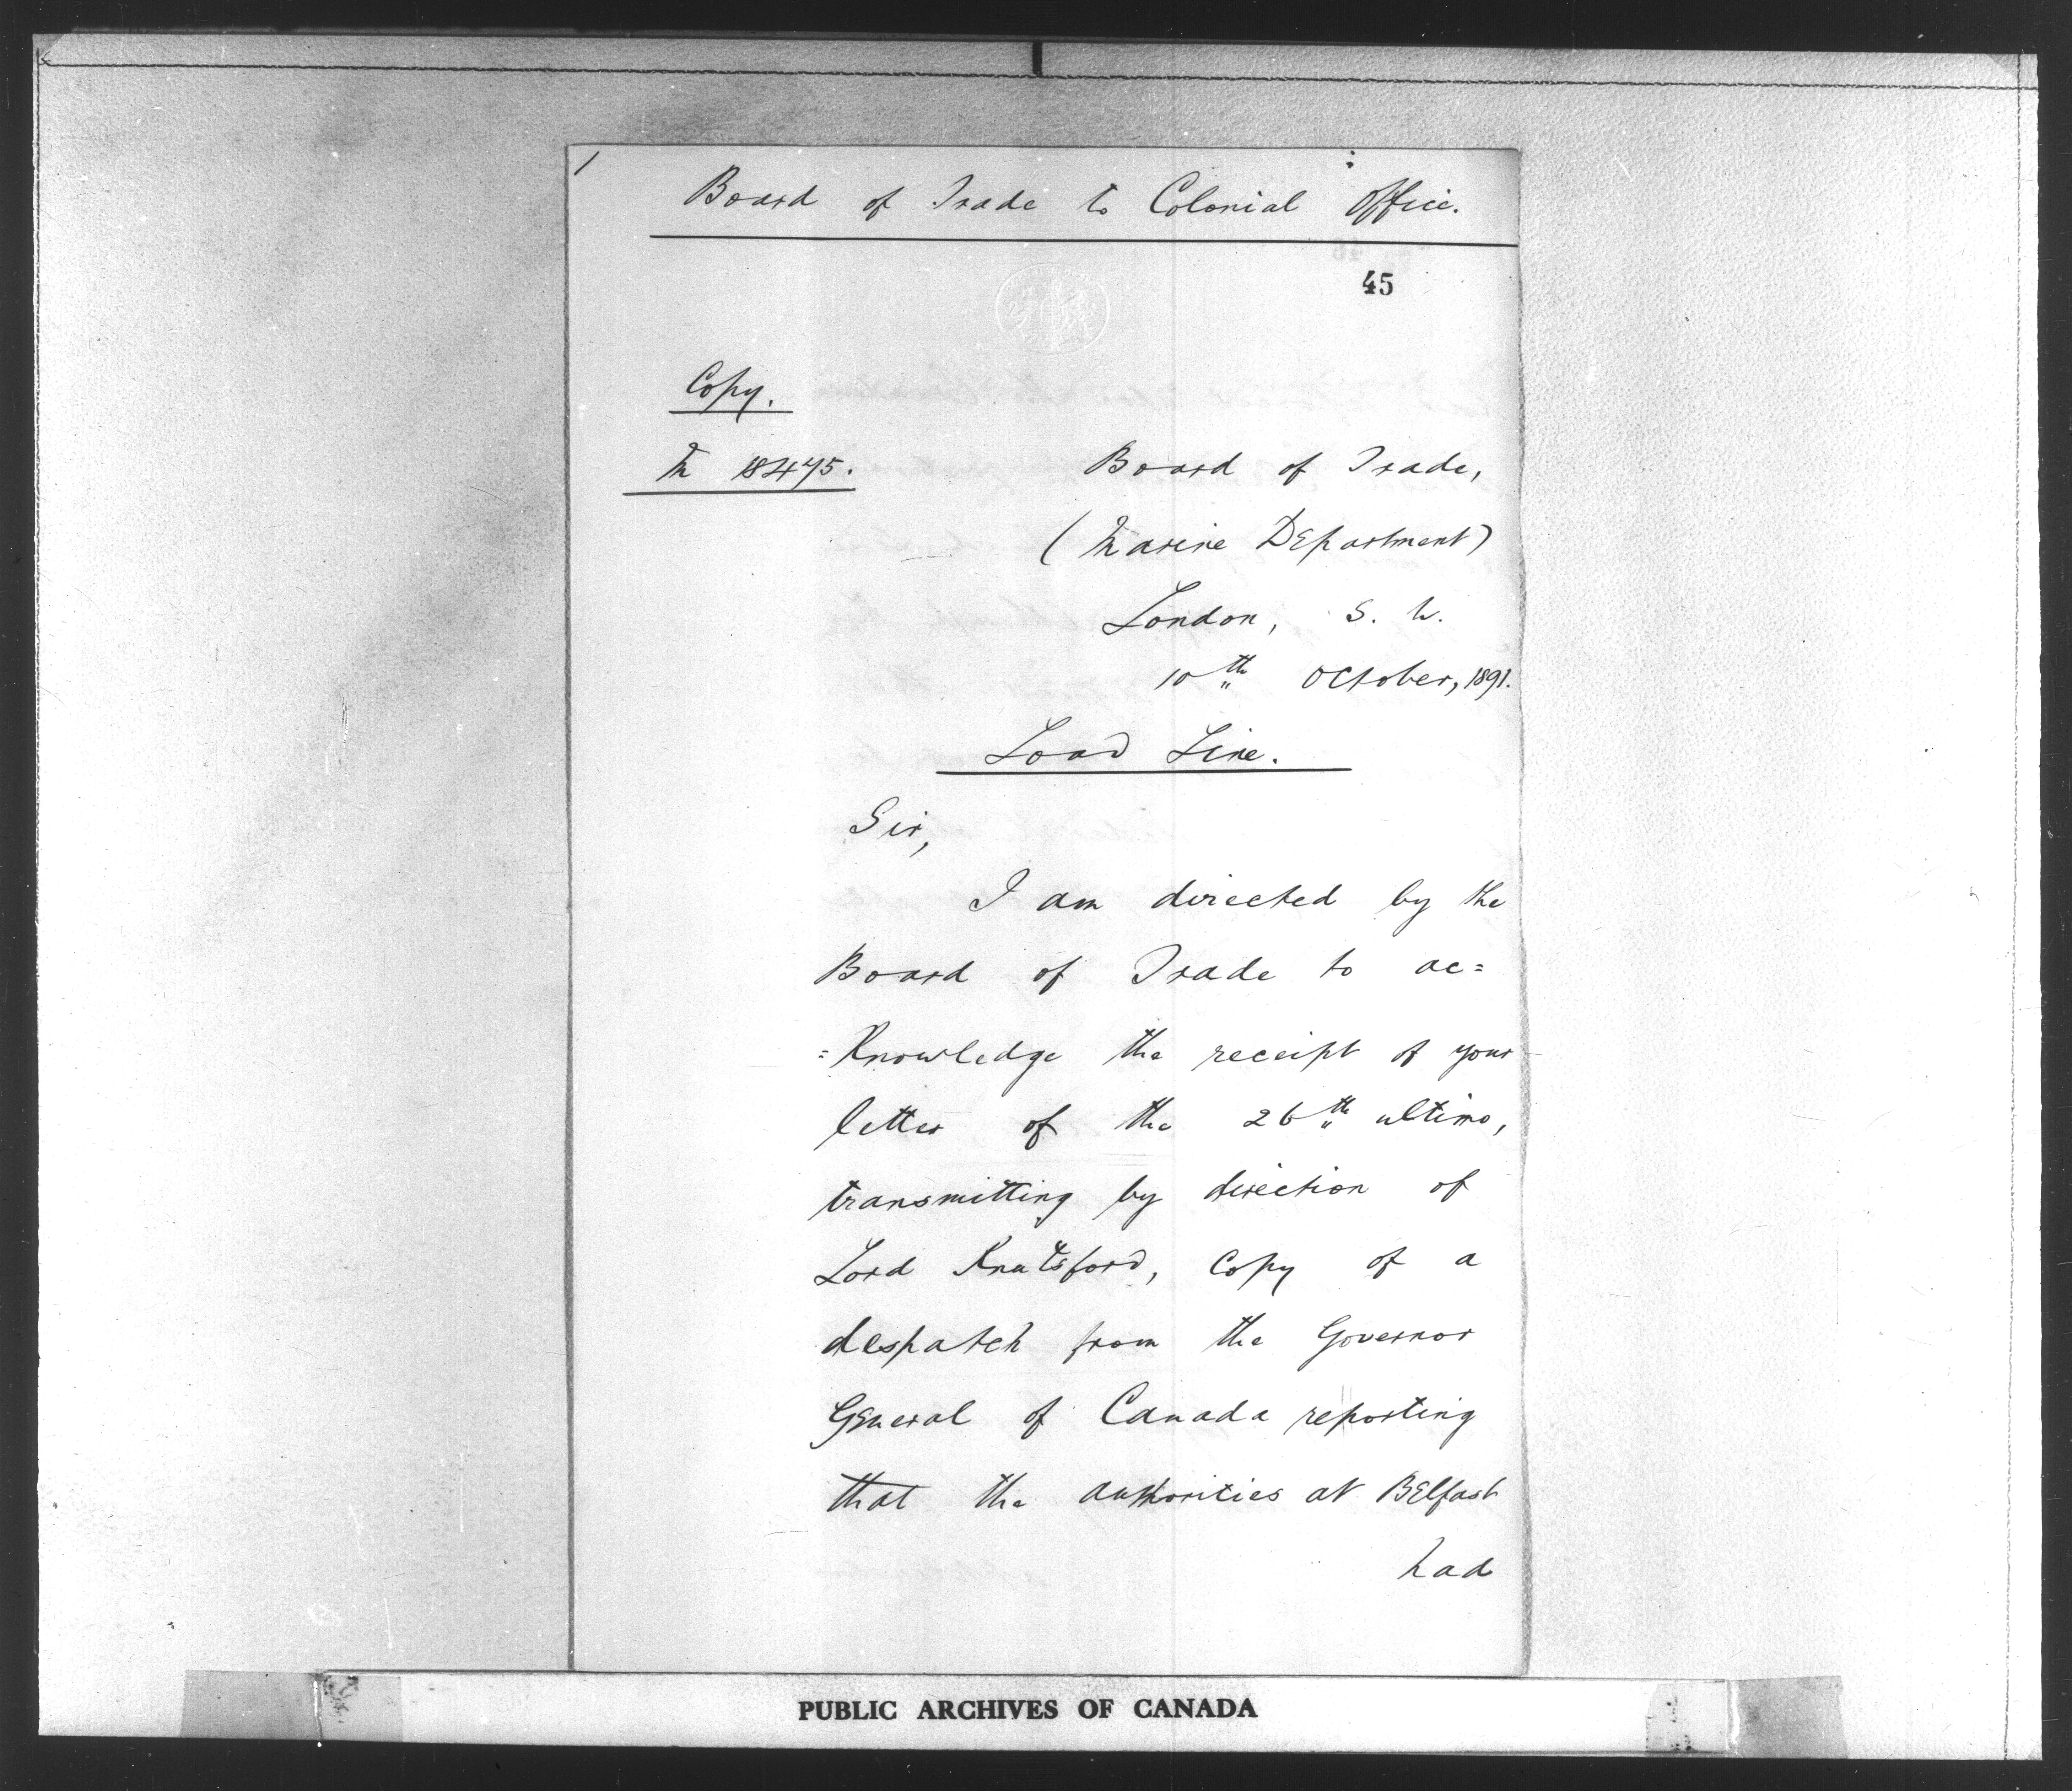 Board of Trade to Colonial Office.
45
Copy.
M 18475.
Board of Trade,
(Marine Department)
London, S. W.
10th October, 1891.
Load Line.
Sir,
I am directed by the
Board of Trade to ac=
=knowledge the receipt of your
letter of the 26th ultimo,
transmitting by direction of
Lord Knutsford, copy of a
despatch from the Governor
General of Canada reporting
that the authorities at Belfast
had
PUBLIC ARCHIVES OF CANADA